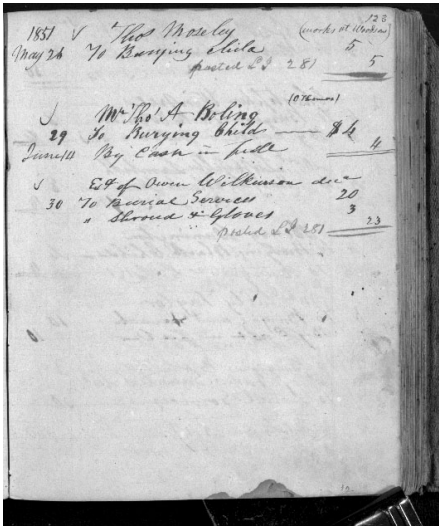 123
1851 √ Thos Moseley (works at
May 26 To Burying Child 5
posted L I 281 5
√ Mr Tho' A Boling
29 To Burying Child — $4
June By Cash in full 4
√ Est of Owen Wilkinson dec
30 To Burial Services 20
" Shroud & Gloves 3
posted L I 281 23